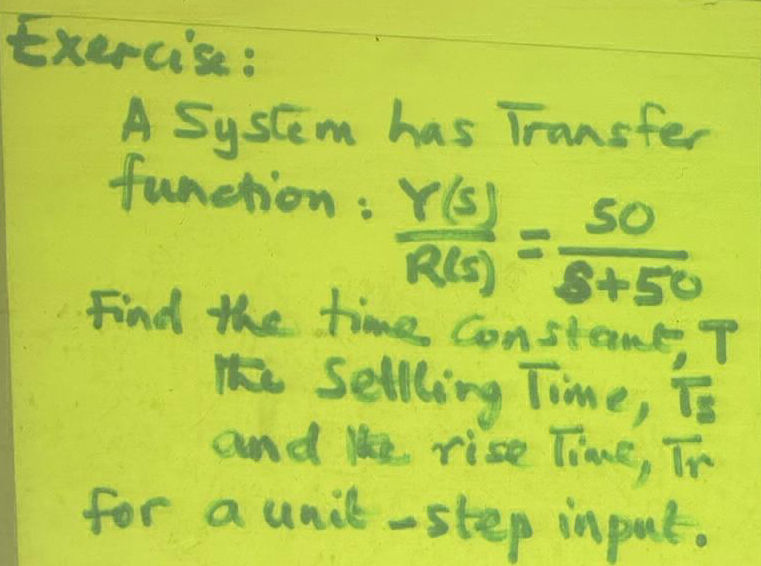 Exercise:
A System has Transfer
function: Y(s)/R(s) = 50/(s+50)
Find the time constant, T
the Settling Time, Ts
and the rise Time, Tr
for a unit-step input.